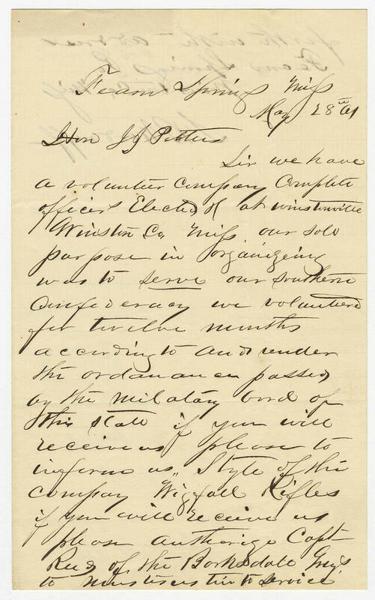 Springs Miss
May 28th 61
Hon J J Pettus
Sir we have
a volunteer company complete
officers Elected &c at winstonville
Winston Co Miss our sole
purpose in organizeing
was to serve our southern
confederacy we volunteerd
for twelve months
according to and under
the ordanance passed
by the military bord of
this state if you will
receive us please to
informe us, Style of the
company Wigfall Rifles
if you will receive us
please authorize Capt
of the Barksdale Greys
to muster us in to service